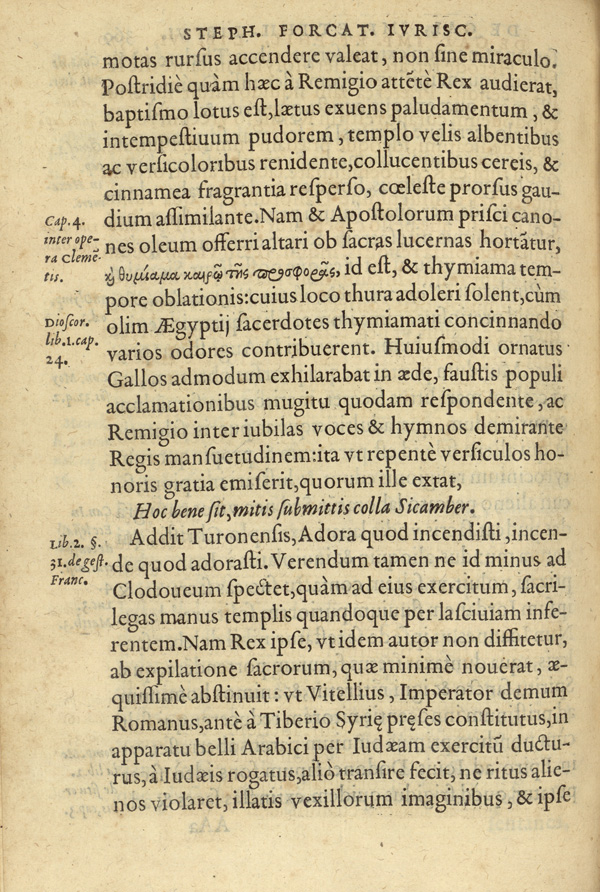 STEPH. FORCAT. IVRISC.
motas rurſus accendere valeat, non ſine miraculo.
Poſtridiè quàm hæc à Remigio attẽtè Rex audierat,
baptiſmo lotus eſt, lætus exuens paludamentum, &
intempeſtiuum pudorem, templo velis albentibus
ac verſicoloribus renidente, collucentibus cereis, &
cinnamea fragrantia reſperſo, cœleſte prorſus gau-
dium aſſimilante. Nam & Apoſtolorum priſci cano-
nes oleum offerri altari ob ſacras lucernas hortãtur,
ϗ θυμίαμα καιρῷ τῆς προσφορᾶς, id eſt, & thymiama tem-
pore oblationis: cuius loco thura adoleri ſolent, cùm
olim Ægyptij ſacerdotes thymiamati concinnando
varios odores contribuerent. Huiuſmodi ornatus
Gallos admodum exhilarabat in æde, fauſtis populi
acclamationibus mugitu quodam reſpondente, ac
Remigio inter iubilas voces & hymnos demirante
Regis manſuetudinem: ita vt repentè verſiculos ho-
noris gratia emiſerit, quorum ille extat,
Hoc bene ſit, mitis ſubmittis colla Sicamber.
Addit Turonenſis, Adora quod incendiſti, incen-
de quod adoraſti. Verendum tamen ne id minus ad
Clodoueum ſpectet, quàm ad eius exercitum, ſacri-
legas manus templis quandoque per laſciuiam infe-
rentem. Nam Rex ipſe, vt idem autor non diffitetur,
ab expilatione ſacrorum, quæ minimè nouerat, æ-
quiſſimè abſtinuit: vt Vitellius, Imperator demum
Romanus, antè à Tiberio Syrię pręſes conſtitutus, in
apparatu belli Arabici per Iudæam exercitũ ductu-
rus, à Iudæis rogatus, aliò tranſire fecit, ne ritus alie-
nos violaret, illatis vexillorum imaginibus, & ipſe
Cap. 4.
inter ope-
ra Clemẽ-
tis.
Dioſcor.
lib. 1. cap.
24.
Lib. 2. §.
31. de geſt.
Franc.